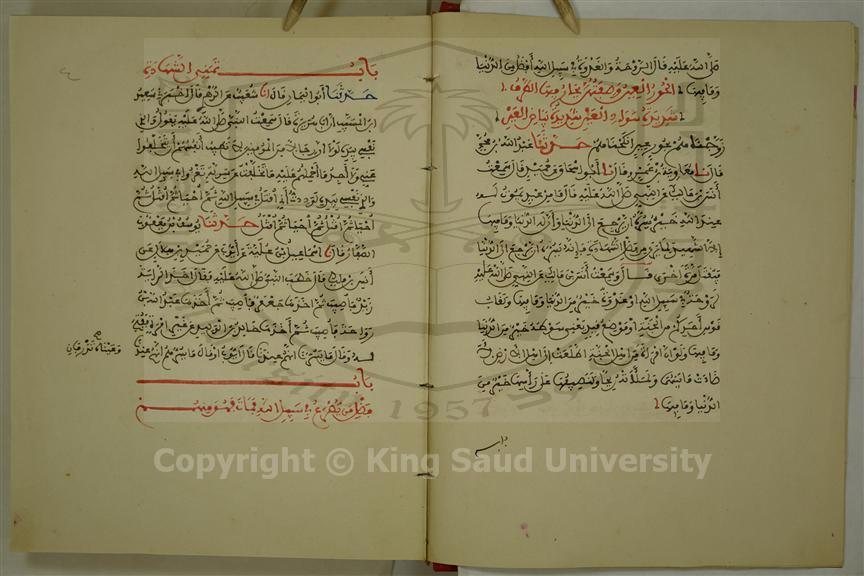 صلى الله عليه قال الروحة والغدوة في سبيل الله أفضل من الدنيا
وما فيها الحور العين وصفتهن يحار فيها الطرف
شديدة سواد العين شديدة بياض العين
زوجناهم بحور عين أنكحناهم حدثنا عبد الله بن محمد
قال نا معاوية بن عمرو قال نا أبو إسحاق عن حميد قال سمعت
أنس بن مالك عن النبي صلى الله عليه قال ما من عبد يموت له
عند الله خير يسره أن يرجع إلى الدنيا وأن له الدنيا وما فيها
إلا الشهيد لما يرى من فضل الشهادة فإنه يسره أن يرجع إلى الدنيا
فيقتل مرة أخرى قال وسمعت أنس بن مالك عن النبي صلى الله عليه
لروحة في سبيل الله أو غدوة خير من الدنيا وما فيها ولقاب
قوس أحدكم من الجنة أو موضع قيد يعني سوطه خير من الدنيا
وما فيها ولو أن امرأة من أهل الجنة اطلعت إلى أهل الأرض
لأضاءت ما بينهما ولملأته ريحا ولنصيفها على رأسها خير من
الدنيا وما فيها
باب
باب تمني الشهادة
حدثنا أبو اليمان قال أنا شعيب عن الزهري قال أخبرني سعيد
ابن المسيب أن أبا هريرة قال سمعت النبي صلى الله عليه يقول والذي
نفسي بيده لولا أن رجالا من المؤمنين لا تطيب أنفسهم أن يتخلفوا
عني ولا أجد ما أحملهم عليه ما تخلفت عن سرية تغزو في سبيل الله
والذي نفسي بيده لوددت أني أقتل في سبيل الله ثم أحيا ثم أقتل ثم
أحيا ثم أقتل ثم أحيا ثم أقتل حدثنا يوسف بن يعقوب
الصفار قال نا إسماعيل بن علية عن أيوب عن حميد بن هلال عن
أنس بن مالك قال خطب النبي صلى الله عليه فقال أخذ الراية
زيد فأصيب ثم أخذها جعفر فأصيب ثم أخذها عبد الله بن
رواحة فأصيب ثم أخذها خالد بن الوليد عن غير إمرة ففتح
له وقال ما يسرنا أنهم عندنا قال أيوب أو قال ما يسرهم أنهم عندنا
وعيناه تذرفان
باب
فضل من يصرع في سبيل الله فمات فهو منهم
1957
Copyright © King Saud University